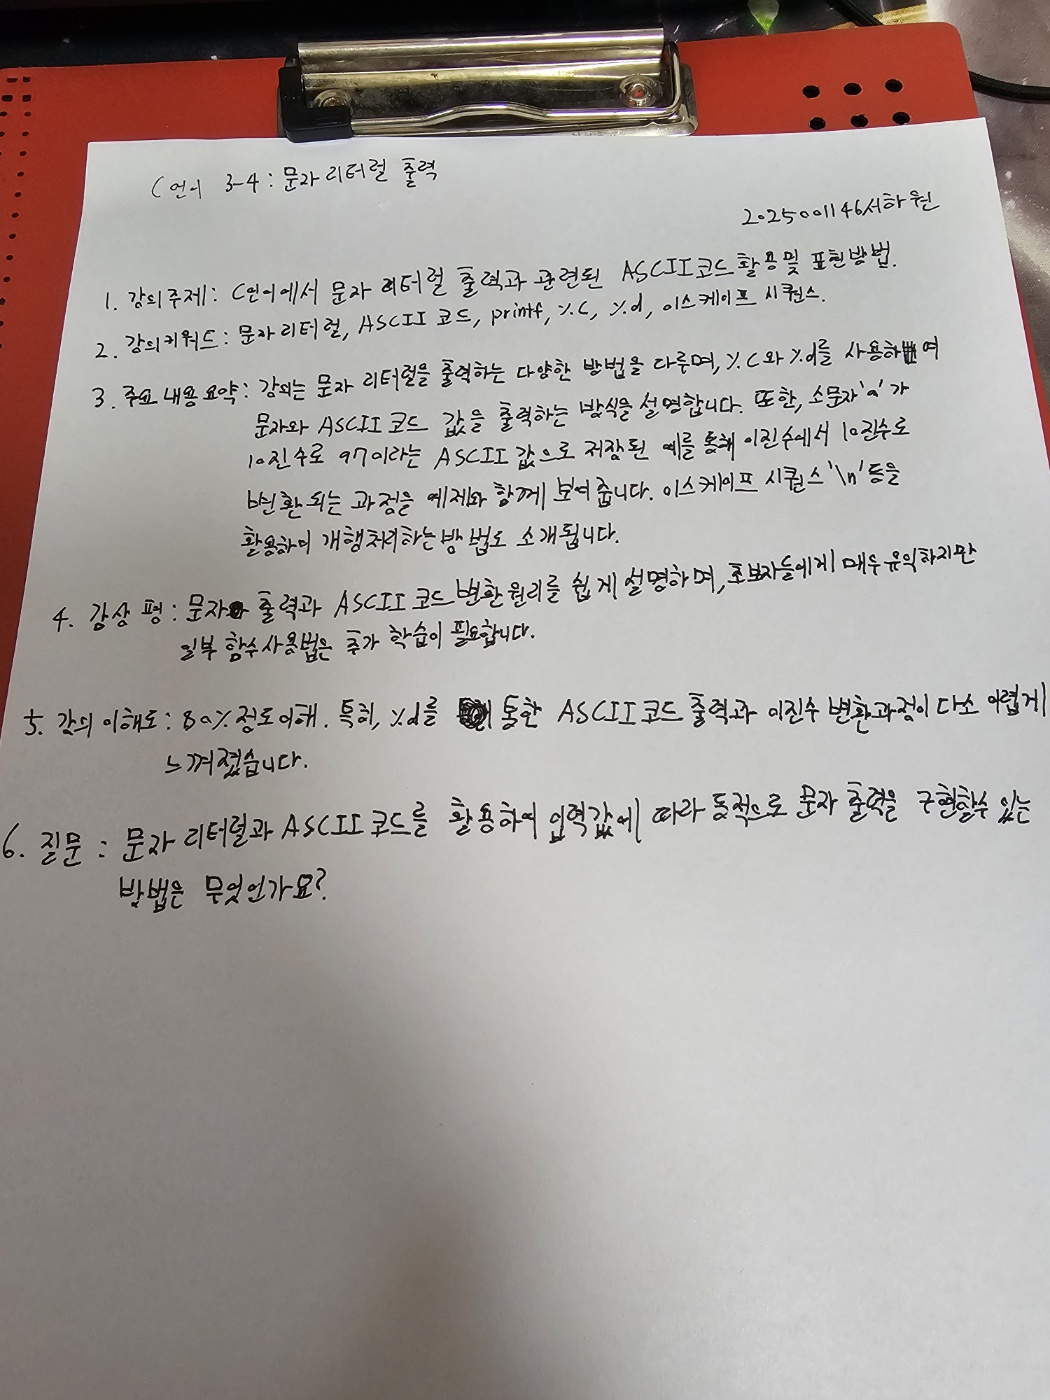 C언어 3-4: 문자 리터럴 출력
2025001146서하원
1. 강의주제: C언어에서 문자 리터럴 출력과 관련된 ASCII코드 활용 및 표현방법.
2. 강의키워드: 문자 리터럴, ASCII 코드, printf, %c, %d, 이스케이프 시퀀스.
3. 주요 내용 요약: 강의는 문자 리터럴을 출력하는 다양한 방법을 다루며, %c와 %d를 사용하여
문자와 ASCII코드 값을 출력하는 방식을 설명합니다. 또한, 소문자 'a'가
10진수로 97이라는 ASCII 값으로 저장된 예를 통해 이진수에서 10진수로
변환되는 과정을 예제와 함께 보여줍니다. 이스케이프 시퀀스 '\n' 등을
활용하여 개행처리하는 방법도 소개됩니다.
4. 감상 평: 문자 출력과 ASCII 코드 변환 원리를 쉽게 설명하며, 초보자들에게 매우 유익하지만
일부 함수 사용법은 추가 학습이 필요합니다.
5. 강의 이해도: 80% 정도 이해. 특히, %d를 통한 ASCII코드 출력과 이진수 변환과정이 다소 어렵게
느껴졌습니다.
6. 질문: 문자 리터럴과 ASCII 코드를 활용하여 입력값에 따라 동적으로 문자 출력을 구현할수 있는
방법은 무엇인가요?